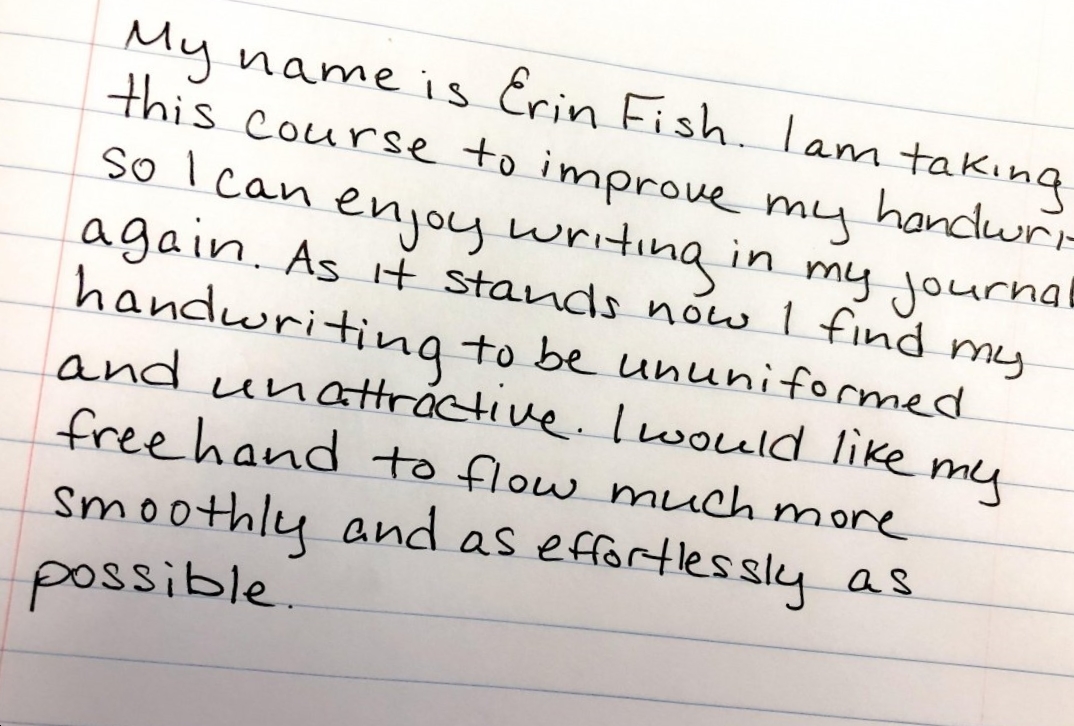 My name is Erin Fish. I am taking
this course to improve my handwri
so I can enjoy writing in my journal
again. As it stands now I find my
handwriting to be ununiformed
and unattractive. I would like my
freehand to flow much more
smoothly and as effortlessly as
possible.